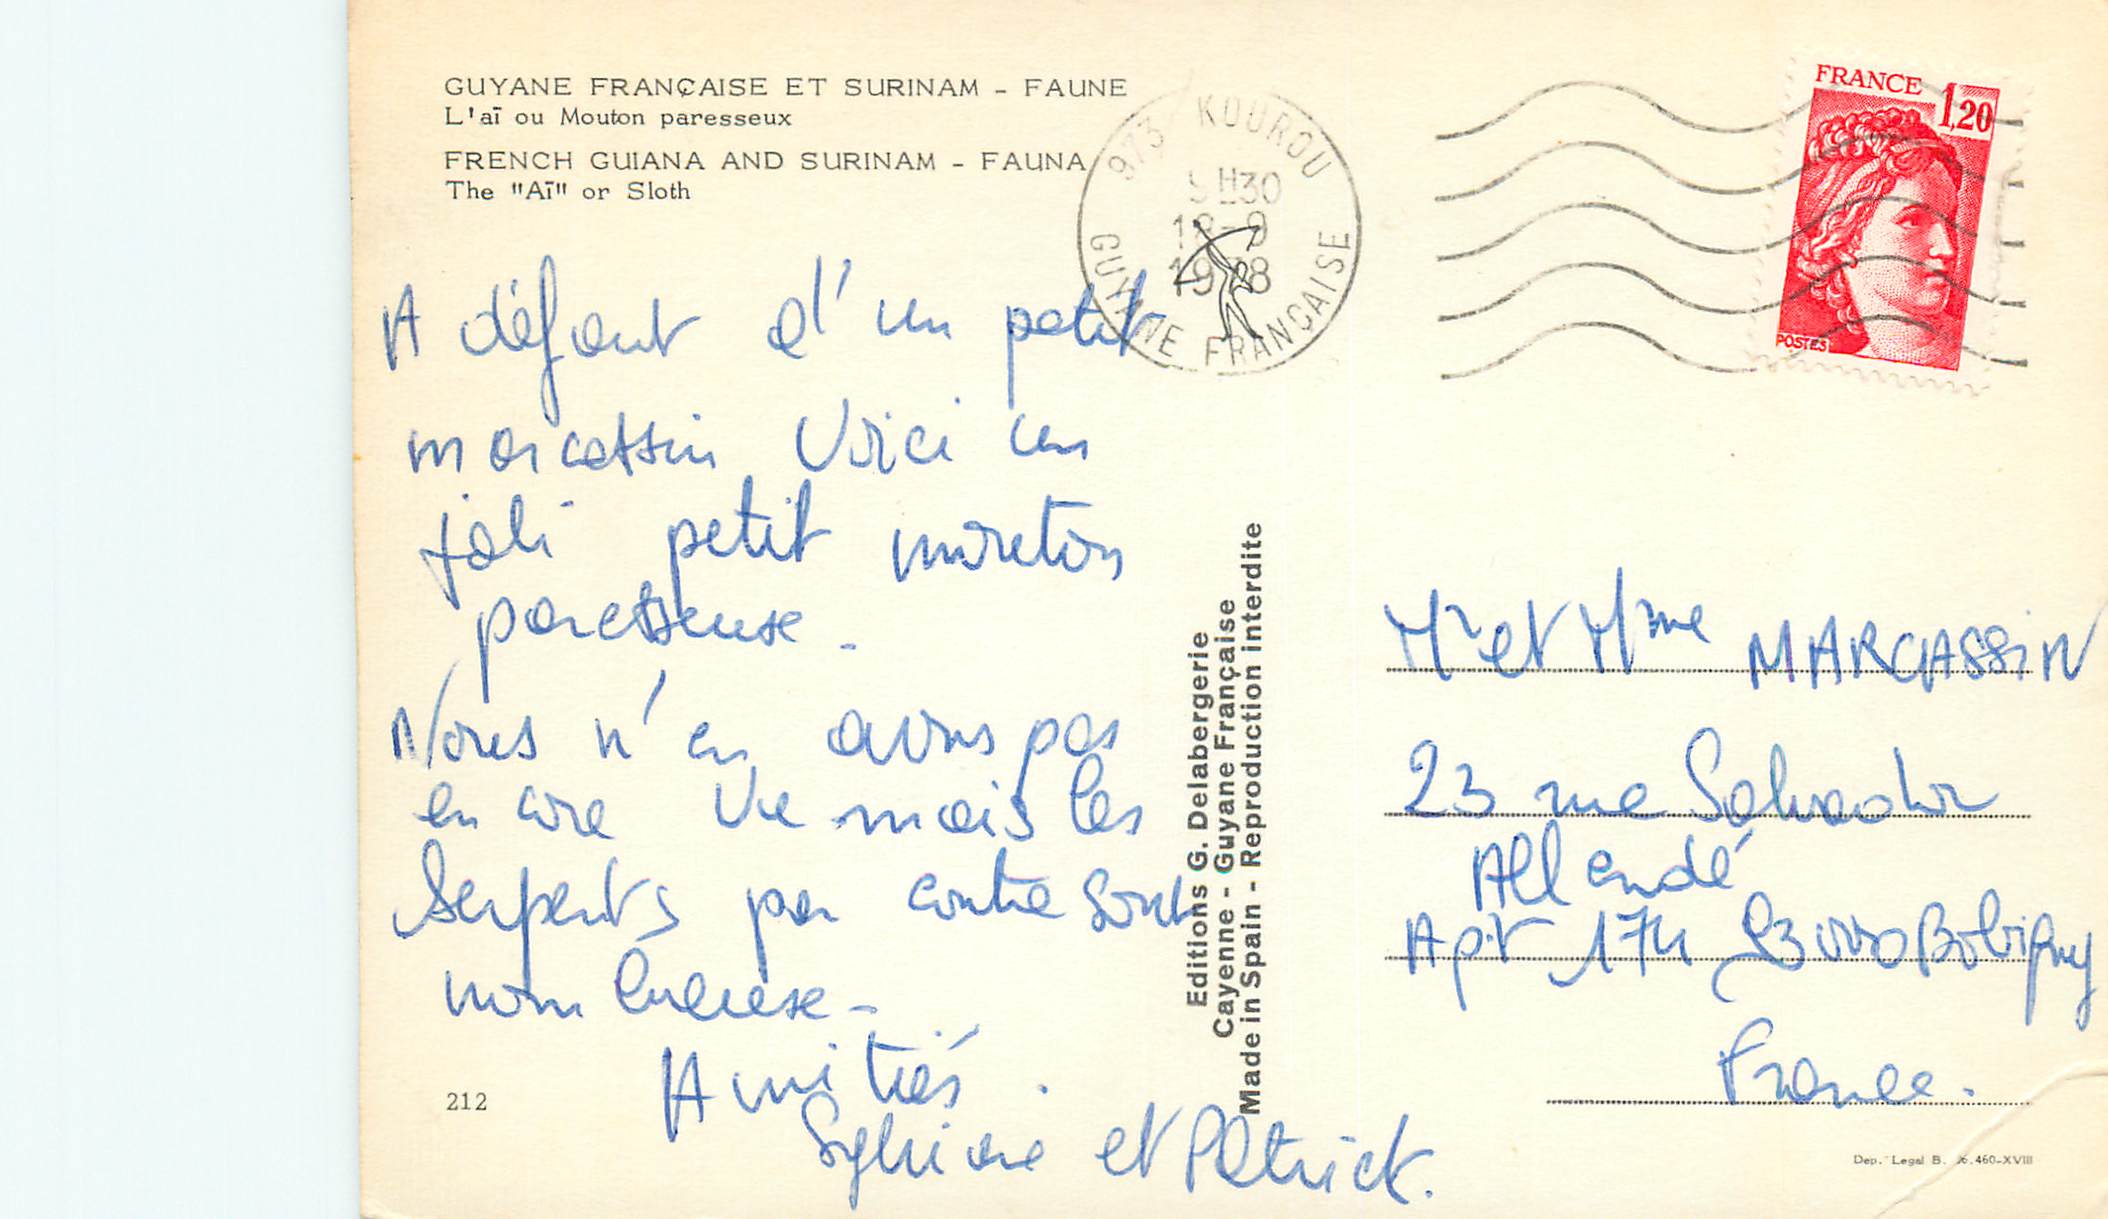 GUYANE FRANÇAISE ET SURINAM - FAUNE
L'aï ou Mouton paresseux
FRENCH GUIANA AND SURINAM - FAUNA
The "Aï" or Sloth
973 KOUROU
9H30
18-9
1978
GUYANE FRANÇAISE
FRANCE
1,20
POSTES
A défaut d'un petit
marcassin voici un
joli petit mouton
paresseuse.
Nous n'en avons pas
encore vu mais les
serpents par contre sont
nombreuse -
Amitiés.
Sylviane et Patrick.
212
Editions G. Delabergerie
Cayenne - Guyane Française
Made in Spain - Reproduction interdite
Mr et Mme MARCASSiN
23 rue Salvador
Allendé
Apt 174 93000 Bobigny
France.
Dep. Legal B. .460-XVIII